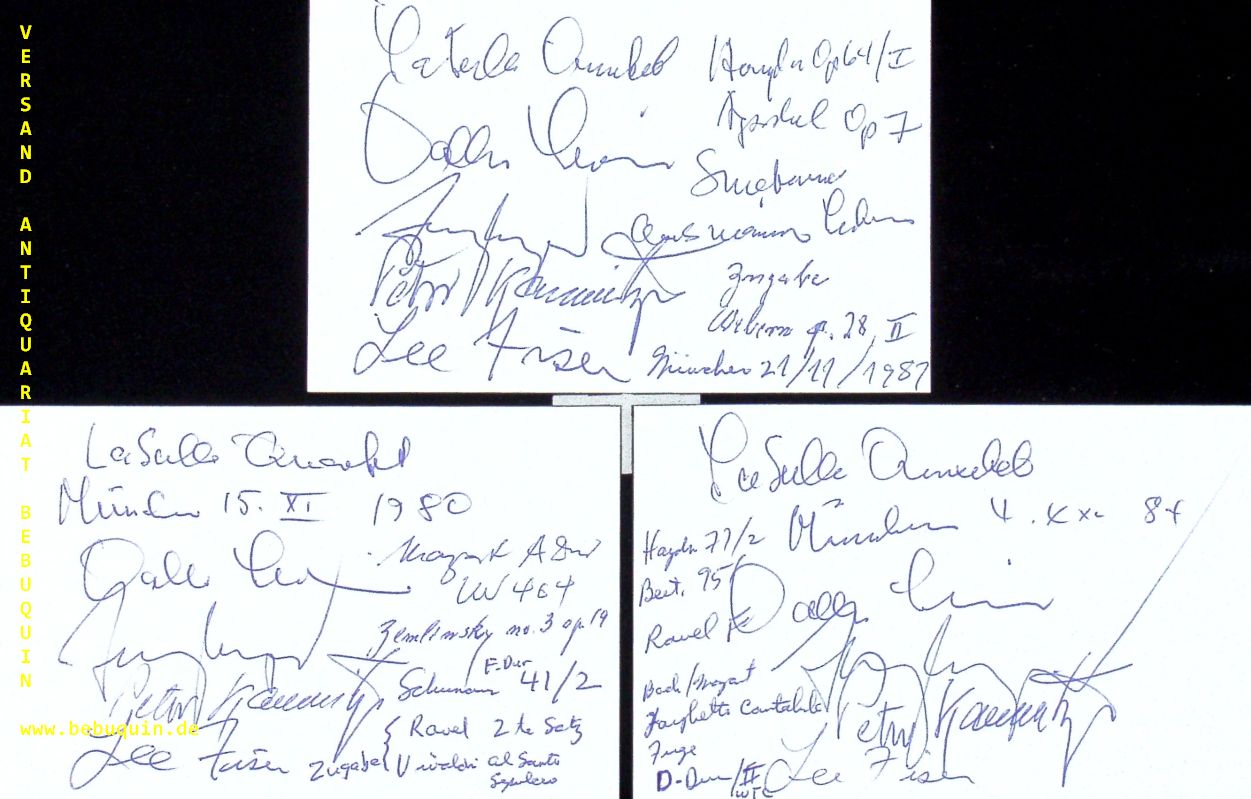 VERSAND ANTIQUARIAT BEBUQUIN
www.bebuquin.de
LaSalle Quartett Haydn Op 64/I
Op 7
Zugabe
Peter Kamnitzer
Webern op. 28, II
Lee Fiser München 21/11/1987
LaSalle Quartett
München 15. XI 1980
Mozart A Dur
KV 464
Zemlinsky no. 3 op 19
F-Dur
Schumann 41/2
Peter Kamnitzer
Ravel 2te Satz
Lee Fiser Zugabe Vivaldi al Santo
Sepolcro
LaSalle Quartett
Haydn 77/2 München 4. 84
Beet. 95
Ravel
Bach/Mozart
Larghetto Cantabile
Peter Kamnitzer
Fuge
D-Dur/II Lee Fiser
WTC